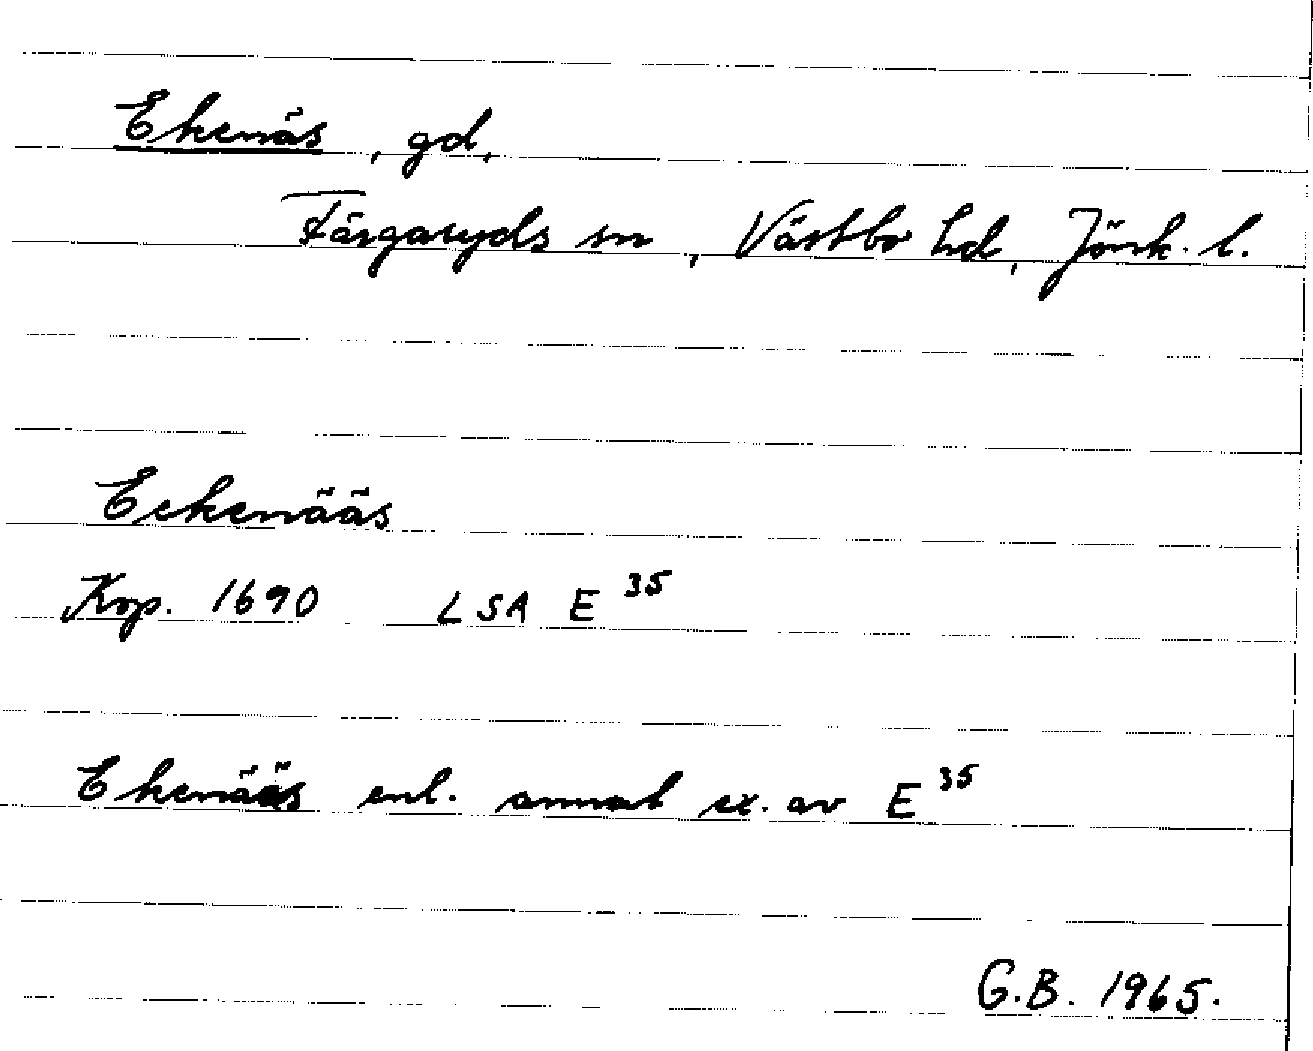 Ekenäs, gd,
Färgaryds sn, Västbo hd, Jönk. l.
Eekenääs
Kop. 1690 LSA E 35
Ekenääs enl. annat ex. av E 35
G.B. 1965.